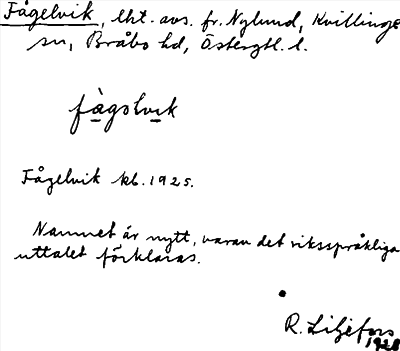 Fågelvik, lht. avs. fr. Nylund, Kvillinge
sn, Bråbo hd, Östergtl. l.
fàgəlvik
Fågelvik kb. 1925.
Namnet är nytt, varav det riksspråkliga
uttalet förklaras.
R. Liljefors
1928